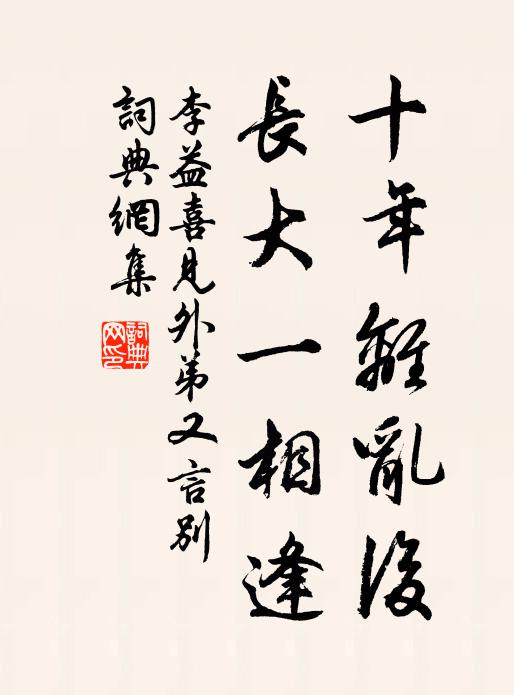 十年離亂後
長大一相逢
李益喜見外弟又言別
詞典網集
詞典網印